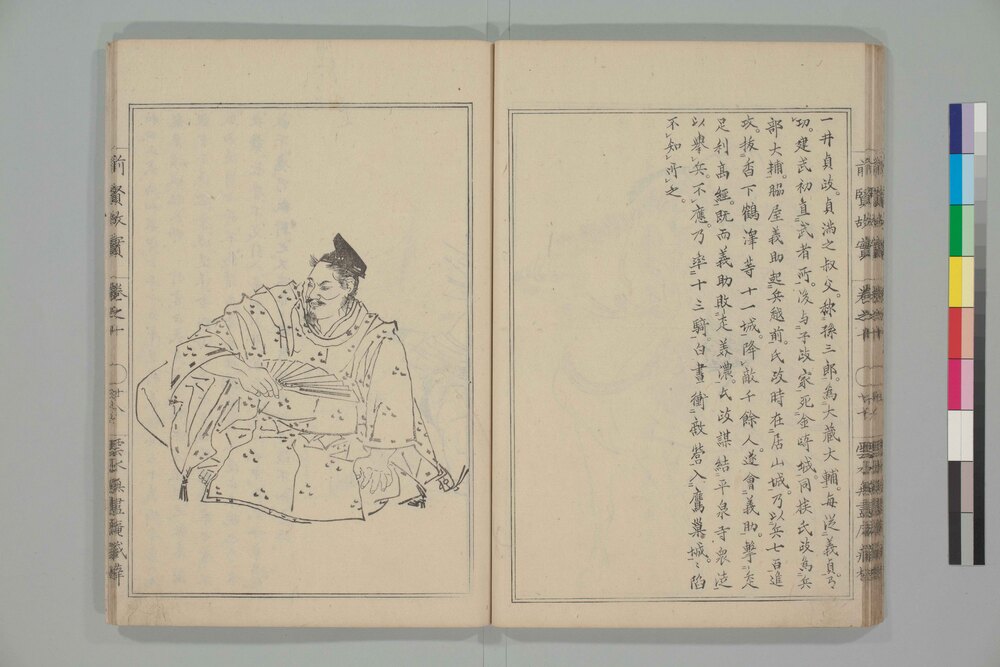 一井貞政。貞満之叔父。称孫三郎。為大蔵大輔。毎従義貞有
功。建武初直武者所。後与子政家死金崎城。同族氏政為兵
部大輔。脇屋義助起兵越前。氏政時在居山城。乃以兵七百進
攻。抜香下鶴澤等十一城。降敵千餘人。遂會義助。撃走
足利高經。既而義助敗走美濃。氏政謀結平泉寺衆徒
以擧兵。不應。乃率十三騎。白晝衝敵營。入鷹巣城。城陥
不知所之。
前賢故實
巻之十
雲水無盡庵蔵梓